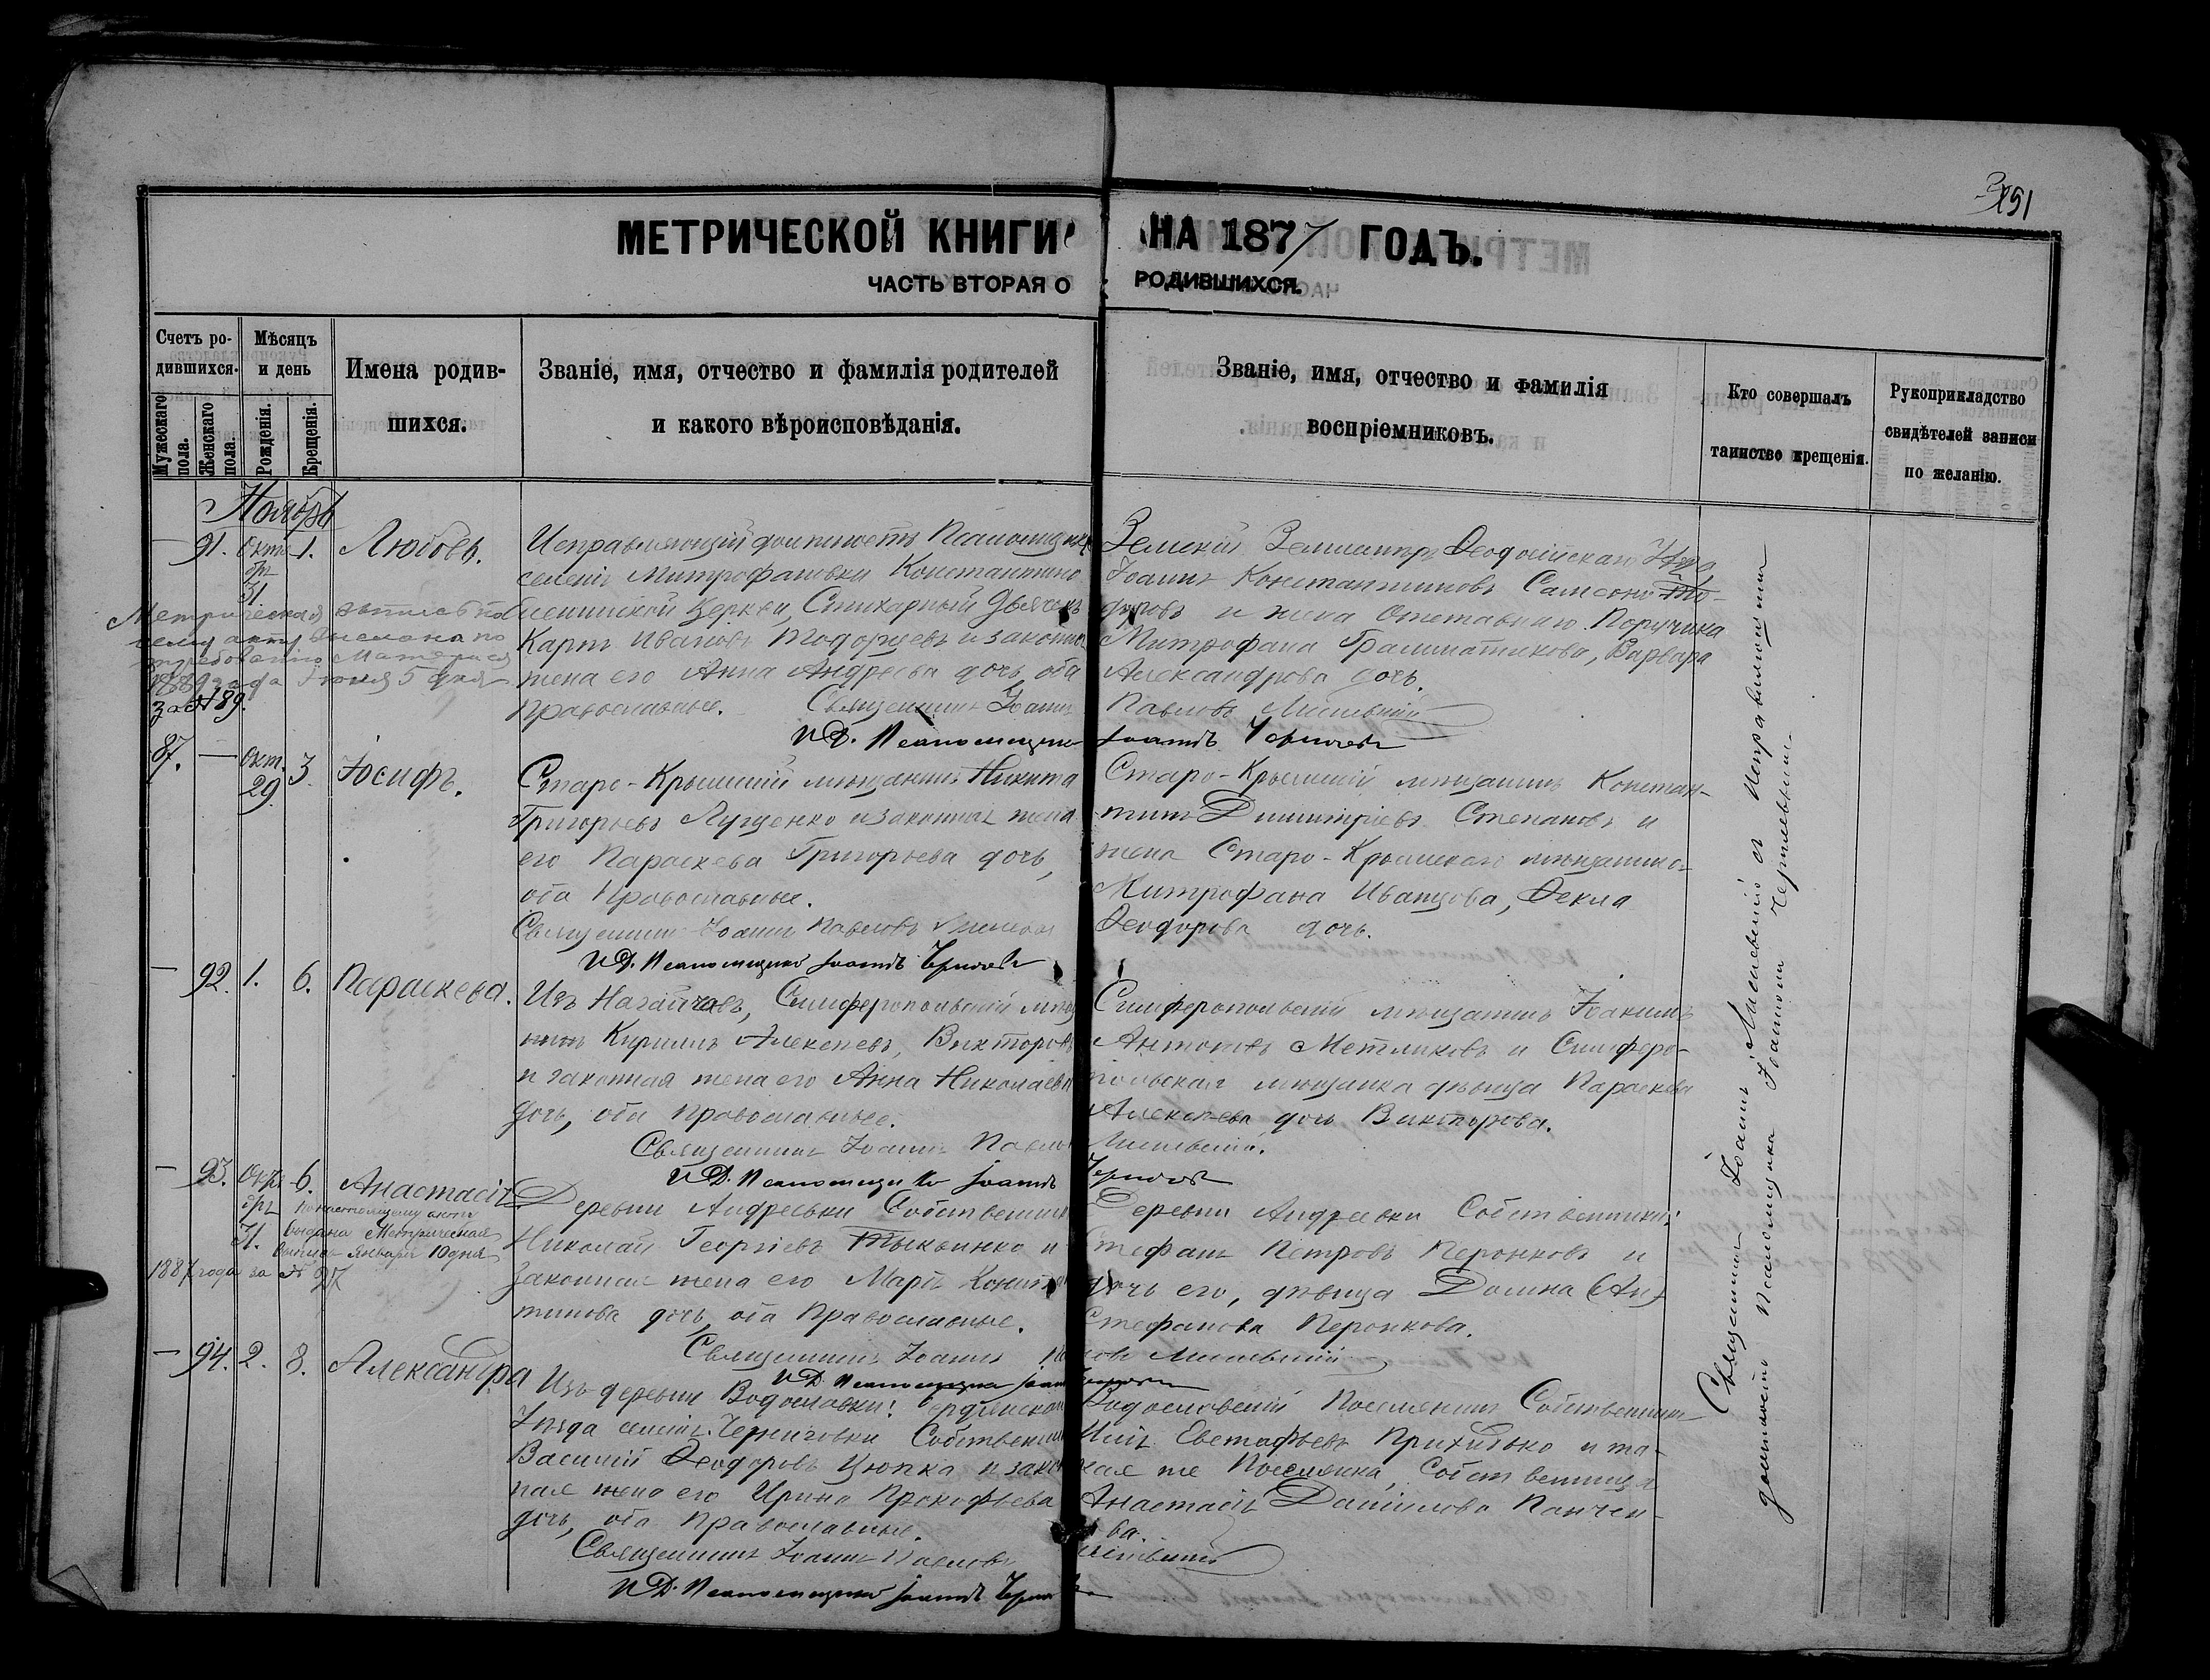 351
МЕТРИЧЕСКОЙ КНИГИ НА 1877 ГОДЪ.
ЧАСТЬ ВТОРАЯ О РОДИВШИХСЯ.
Счетъ ро-
дившихся.
Мужескаго
пола.
Женскаго
пола.
Мѣсяцъ
и день
Рожденія.
Крещенія.
Имена родив-
шихся.
Званіе, имя, отчество и фамилія родителей
и какого вѣроисповѣданія.
Званіе, имя, отчество и фамилія
воспріемниковъ.
Кто совершалъ
таинство крещенія.
Рукоприкладство
свидѣтелей записи
по желанію.
Ноябрь
— 91. Октя
бр.
31
1. Любовь.
Исправляющій должность Псаломщика
селенія Митрофановки Константино
Еленинской Церкви, Стихарный Дьячекъ
Карпъ Ивановъ Тодорцевъ и законная
жена его Анна Андреева дочь, оба
Православные. Священникъ Іоаннъ
И.Д. Псаломщика
Земскій Феодосійскаго
Іоаннъ Константиновъ
и жена Отставнаго Поручика
Митрофана Грамматикова, Варвара
Александрова дочь.
Павловъ
Іоаннъ
Метрическая выпись по
сему акту выслана по
требованію
1889 года Іюня 5 дня
за № 189.
87. — Окт.
29.
3. Іосифъ.
Старо-Крымскій мѣщанинъ Никита
Григорьевъ Луценко и законная жена
его Параскева Григорьева дочь,
оба Православные.
Священникъ Іоаннъ Павловъ
И.Д. Псаломщика Іоаннъ
Старо-Крымскій мѣщанинъ Констан-
тинъ Димитріевъ Степановъ и
жена Старо-Крымскаго мѣщанина
Митрофана Иванцова, Фекла
Феодорова дочь.
— 92. 1. 6. Параскева.
Изъ Нагайчовъ, Симферопольскій мѣща
нинъ Кириллъ Алексѣевъ Викторовъ
и законная жена его Анна Николаева
дочь, оба Православные.
Священникъ Іоаннъ Павловъ
И.Д. Псаломщика Іоаннъ
Симферопольскій мѣщанинъ Іакимъ
Антоновъ Метликовъ и Симферо-
польская мѣщанка дѣвица Параскева
Алексѣева дочь Викторова.
— 93. Октя
бр.
31.
6. Анастасія
По настоящему акту
выдана Метрическая
выпись Января 10 дня
1887 года за № 27
Деревни Андреевки Собственникъ
Николай Георгіевъ Тыквинко и
законная жена его Марія Констан
тинова дочь, оба Православные.
Священникъ Іоаннъ
И.Д. Псаломщика
Деревни Андреевки Собственникъ
Стефанъ Петровъ Перонковъ и
дочь его, дѣвица Домна
Стефанова Перонкова.
— 94. 2. 8. Александра
Изъ деревни Водославки: Бердянскаго
Уѣзда селенія Черниговки Собственникъ
Василій Феодоровъ Цюпка и закон
ная жена его Ирина Прокофьева
дочь, оба Православные.
Священникъ Іоаннъ Павловъ
И.Д. Псаломщика Іоаннъ
Водославскій Поселянинъ Собственникъ
Илія Евстафьевъ Прихидько и та-
кая же Поселянка, Собственница
Анастасія Данилова Панчен-
кова.
Священникъ Іоаннъ съ Исправляющимъ
должность Псаломщика Іоанномъ